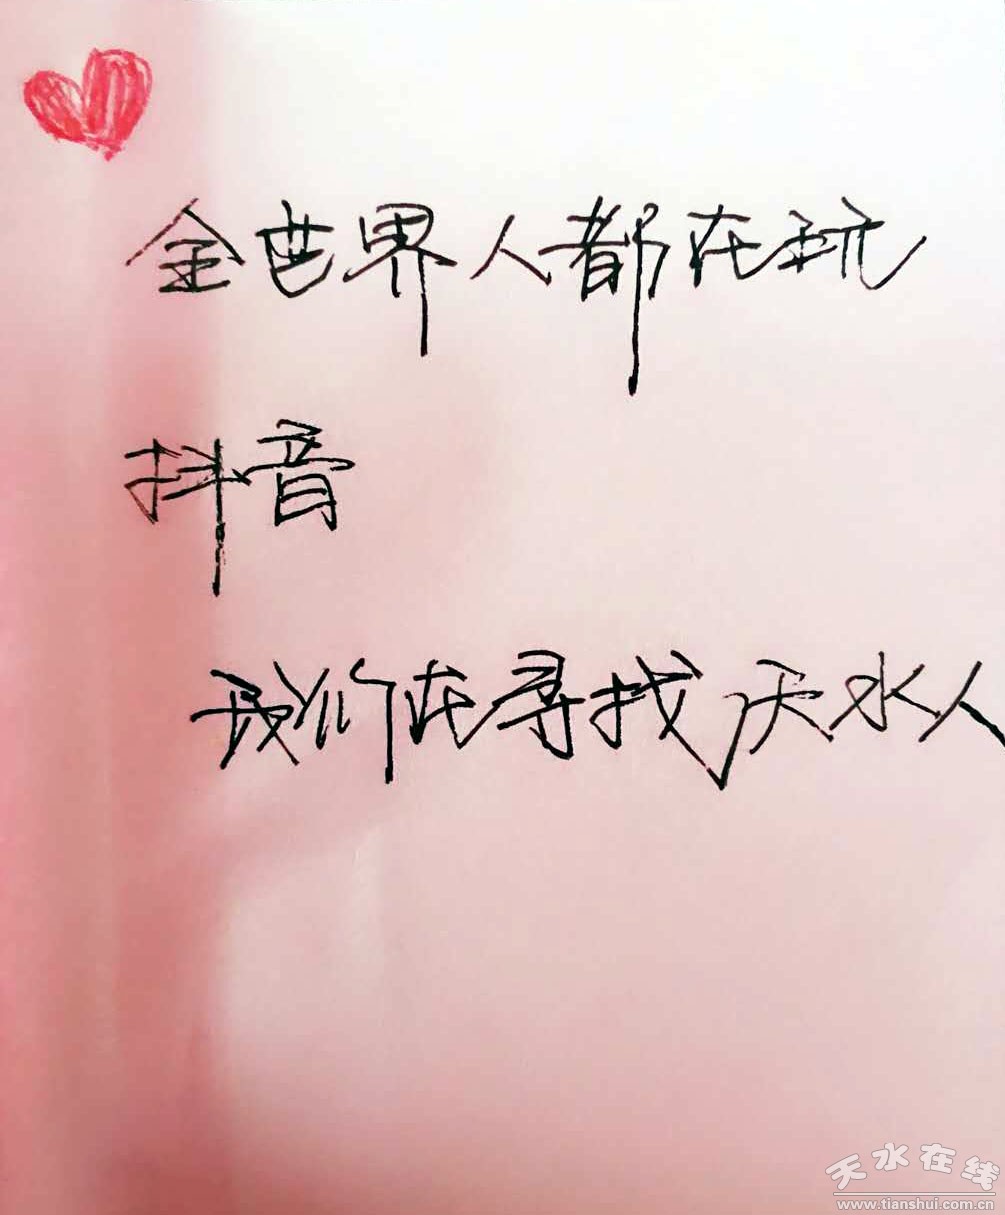 全世界人都在玩
抖音
我们在寻找天水人
天水在线
www.tianshui.com.cn